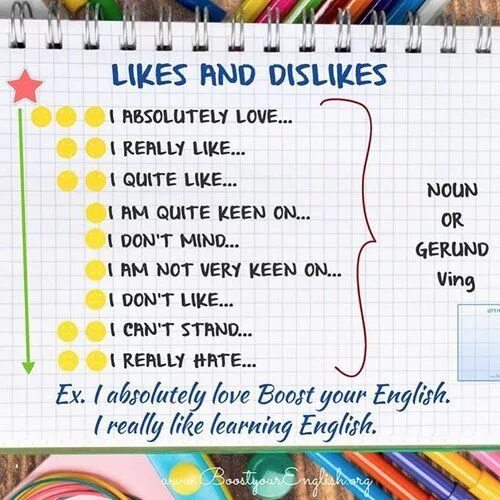 LIKES AND DISLIKES
I ABSOLUTELY LOVE...
I REALLY LIKE...
I QUITE LIKE...
I AM QUITE KEEN ON...
I DON'T MIND...
I AM NOT VERY KEEN ON...
I DON'T LIKE...
I CAN'T STAND...
I REALLY HATE...
NOUN
OR
GERUND
Ving
Ex. I absolutely love Boost your English.
I really like learning English.
www.BoostyourEnglish.org